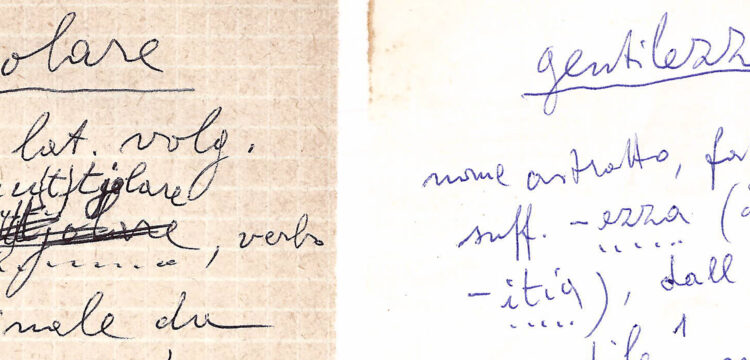 olare
lat. volg.
tjolare
, verbo
nale da
gentilezz
nome astratto, fo
suff. -ezza (
-itia), dall
tile 1